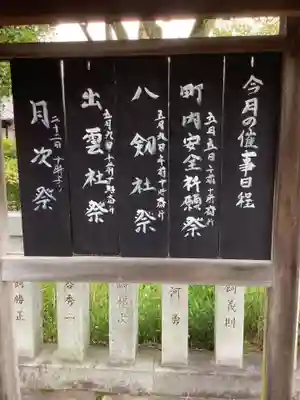 今月の催事日程
町内安全祈願祭
五月五日午前十時斎行
八剱社祭
五月九日午前十時斎行
出雲社祭
五月九日午前十時斎行
月次祭
二十二日十時より
河勇
谷秀一
勝正
義則